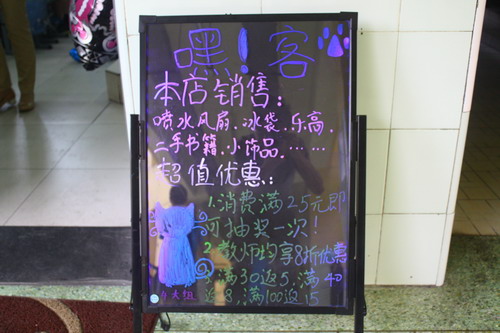 嘿！客
本店销售：
喷水风扇、冰袋、乐高、
二手书籍、小饰品、……
超值优惠：
1.消费满25元即
可抽奖一次！
2.教师均享8折优惠
3.满30返5，满40
返8，满100返15